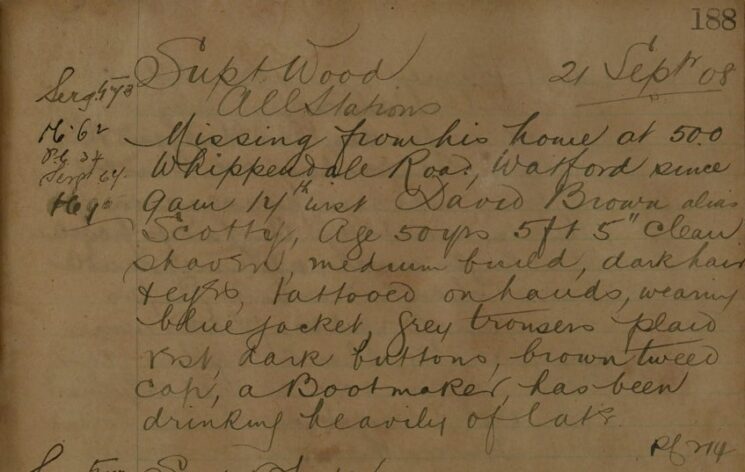 188
Supt. Wood 21 Septr 08
All Stations
Missing from his home at 500
Whippendale Road, Watford since
9am 14th inst David Brown alias
Scotty, Age 50yrs 5ft 5" Clean
shaven, medium build, dark hair
& eyes, tattooed on hands, wearing
blue jacket, grey trousers plaid
vest, dark buttons, brown tweed
cap, a Bootmaker, has been
drinking heavily of late.
PC 214